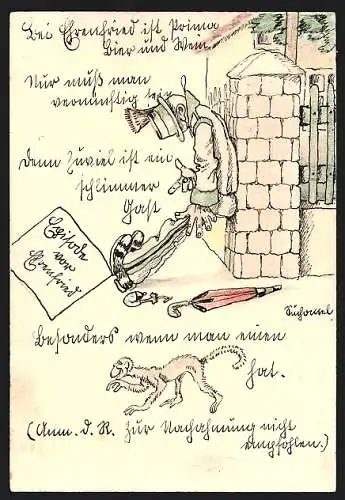 Bei Ehrenfried ist Prima
Bier und Wein
Nur muß man
vernünftig sein
Denn Zuviel ist ein
schlimmer
Gast
Episode
vor
Ehrenfried
besonders wenn man einen
hat.
(Anm. d. R. zur Nachahmung nicht
empfohlen.)